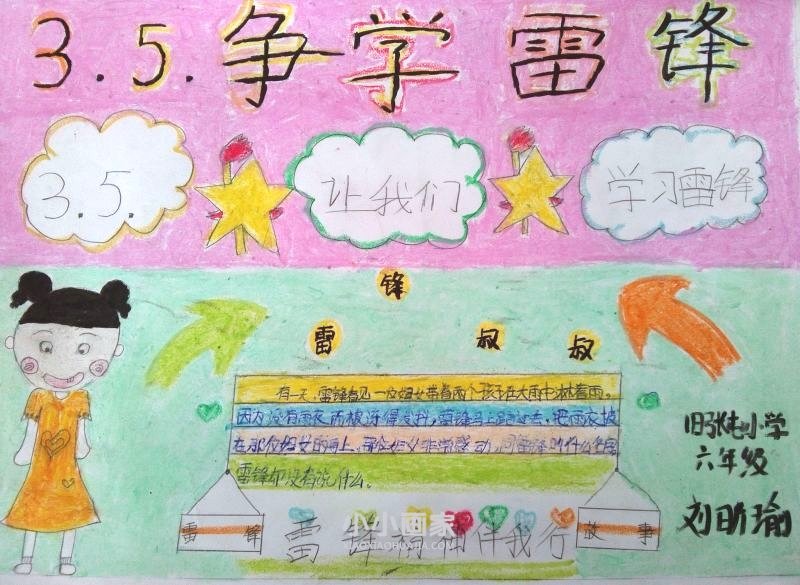 3.5.争学雷锋
3.5.
让我们
学习雷锋
雷锋叔叔
有一天,雷锋看见一位妇女带着两个孩子在大雨中淋着雨。
因为没有雨衣而被淋得发抖,雷锋马上跑过去,把雨衣披
在那位妇女的身上,那位妇女非常感动,问雷锋叫什么名字
雷锋却没有说什么。
旧张屯小学
六年级
刘昕瑜
雷锋
故事
雷锋精神伴我行
小小画家
XIAOXIAOHUAJIA.COM